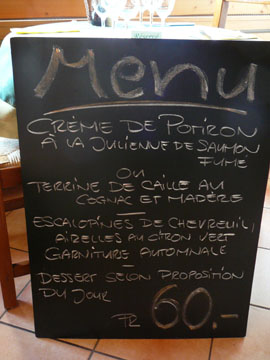 Menu
CRÈME DE POTIRON
À LA JULIENNE DE SAUMON
FUMÉ
OU
TERRINE DE CAILLE AU
COGNAC ET MADÈRE
ESCALOPINES DE CHEVREUIL,
AIRELLES AU CITRON VERT
GARNITURE AUTOMNALE
DESSERT SELON PROPOSITION
DU JOUR
FR 60.-